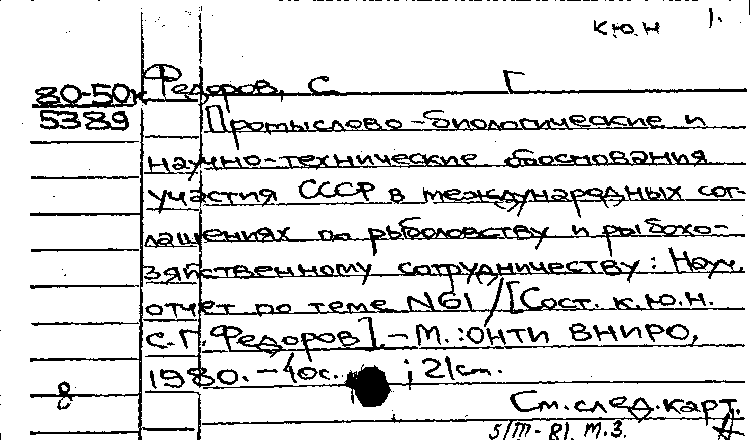 К.Ю.Н 1.
80-50к Федоров, С. Г
5389 Промыслово-биологические и
научно-технические обоснования
участия СССР в международных сог-
лашениях по рыболовству и рыбохо-
зяйственному сотрудничеству: Науч.
отчет по теме №61 / [Сост. к.ю.н.
С.Г. Федоров]. - М.: ОНТИ ВНИРО,
1980. - 40с. ; 21см.
8 См.след.карт.
5/III-81. М.З.